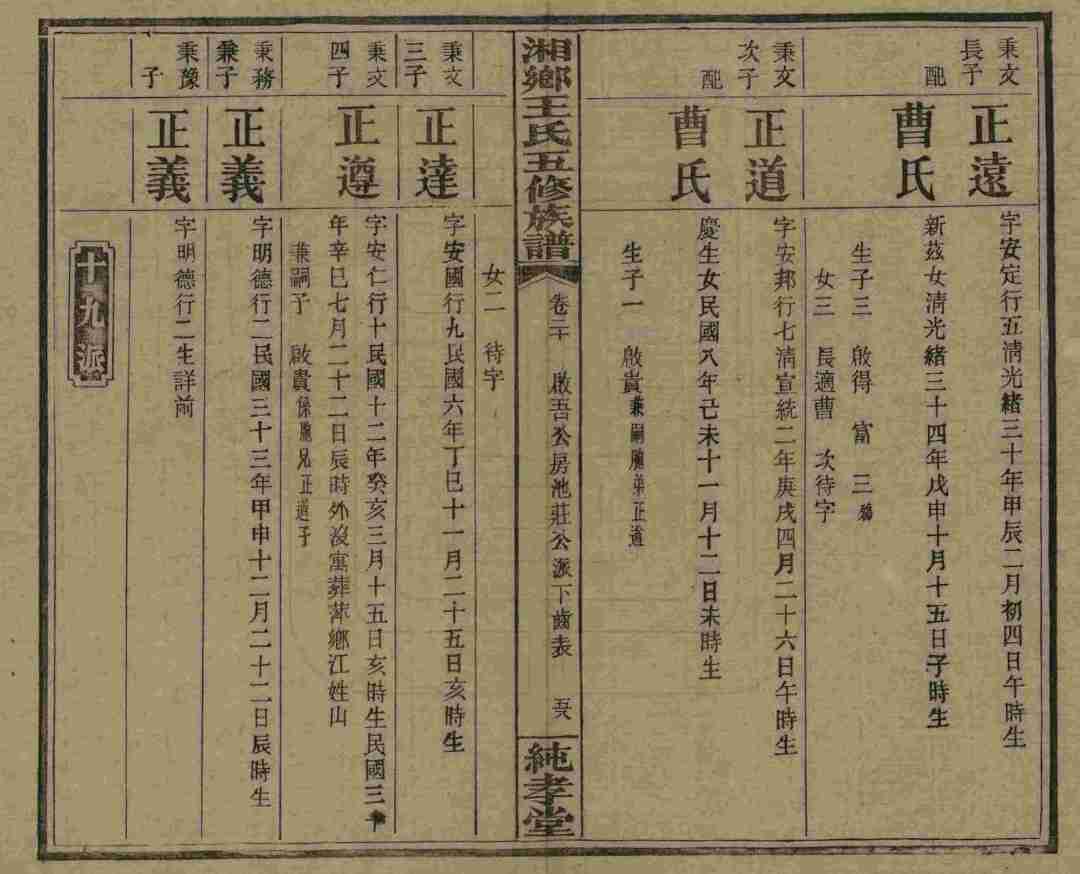 秉文長子
正遠
字安定行五淸光緒三十年甲辰二月初四日午時生
配
曹氏
新茲女淸光緒三十四年戊申十月十五日子時生
生子三 啟得 富 三殤
女三 長適曹 次待字
秉文次子
正道
字安邦行七淸宣統二年庚戌四月二十六日午時生
配
曹氏
慶生女民國八年己未十一月十二日未時生
生子一 啟貴兼嗣胞弟正遵
湘鄉王氏五修族譜
卷二十 啟吾公房池莊公派下齒表
純孝堂
女二 待字
秉文三子
正達
字安國行九民國六年丁巳十一月二十五日亥時生
秉文四子
正遵
字安仁行十民國十二年癸亥三月十五日亥時生民國三十
年辛巳七月二十二日辰時外沒寓葬萍鄉江姓山
兼嗣子 啟貴係胞兄正道子
秉務兼子
正義
字明德行二民國三十三年甲申十二月二十二日辰時生
秉豫子
正義
字明德行二生詳前
十九派